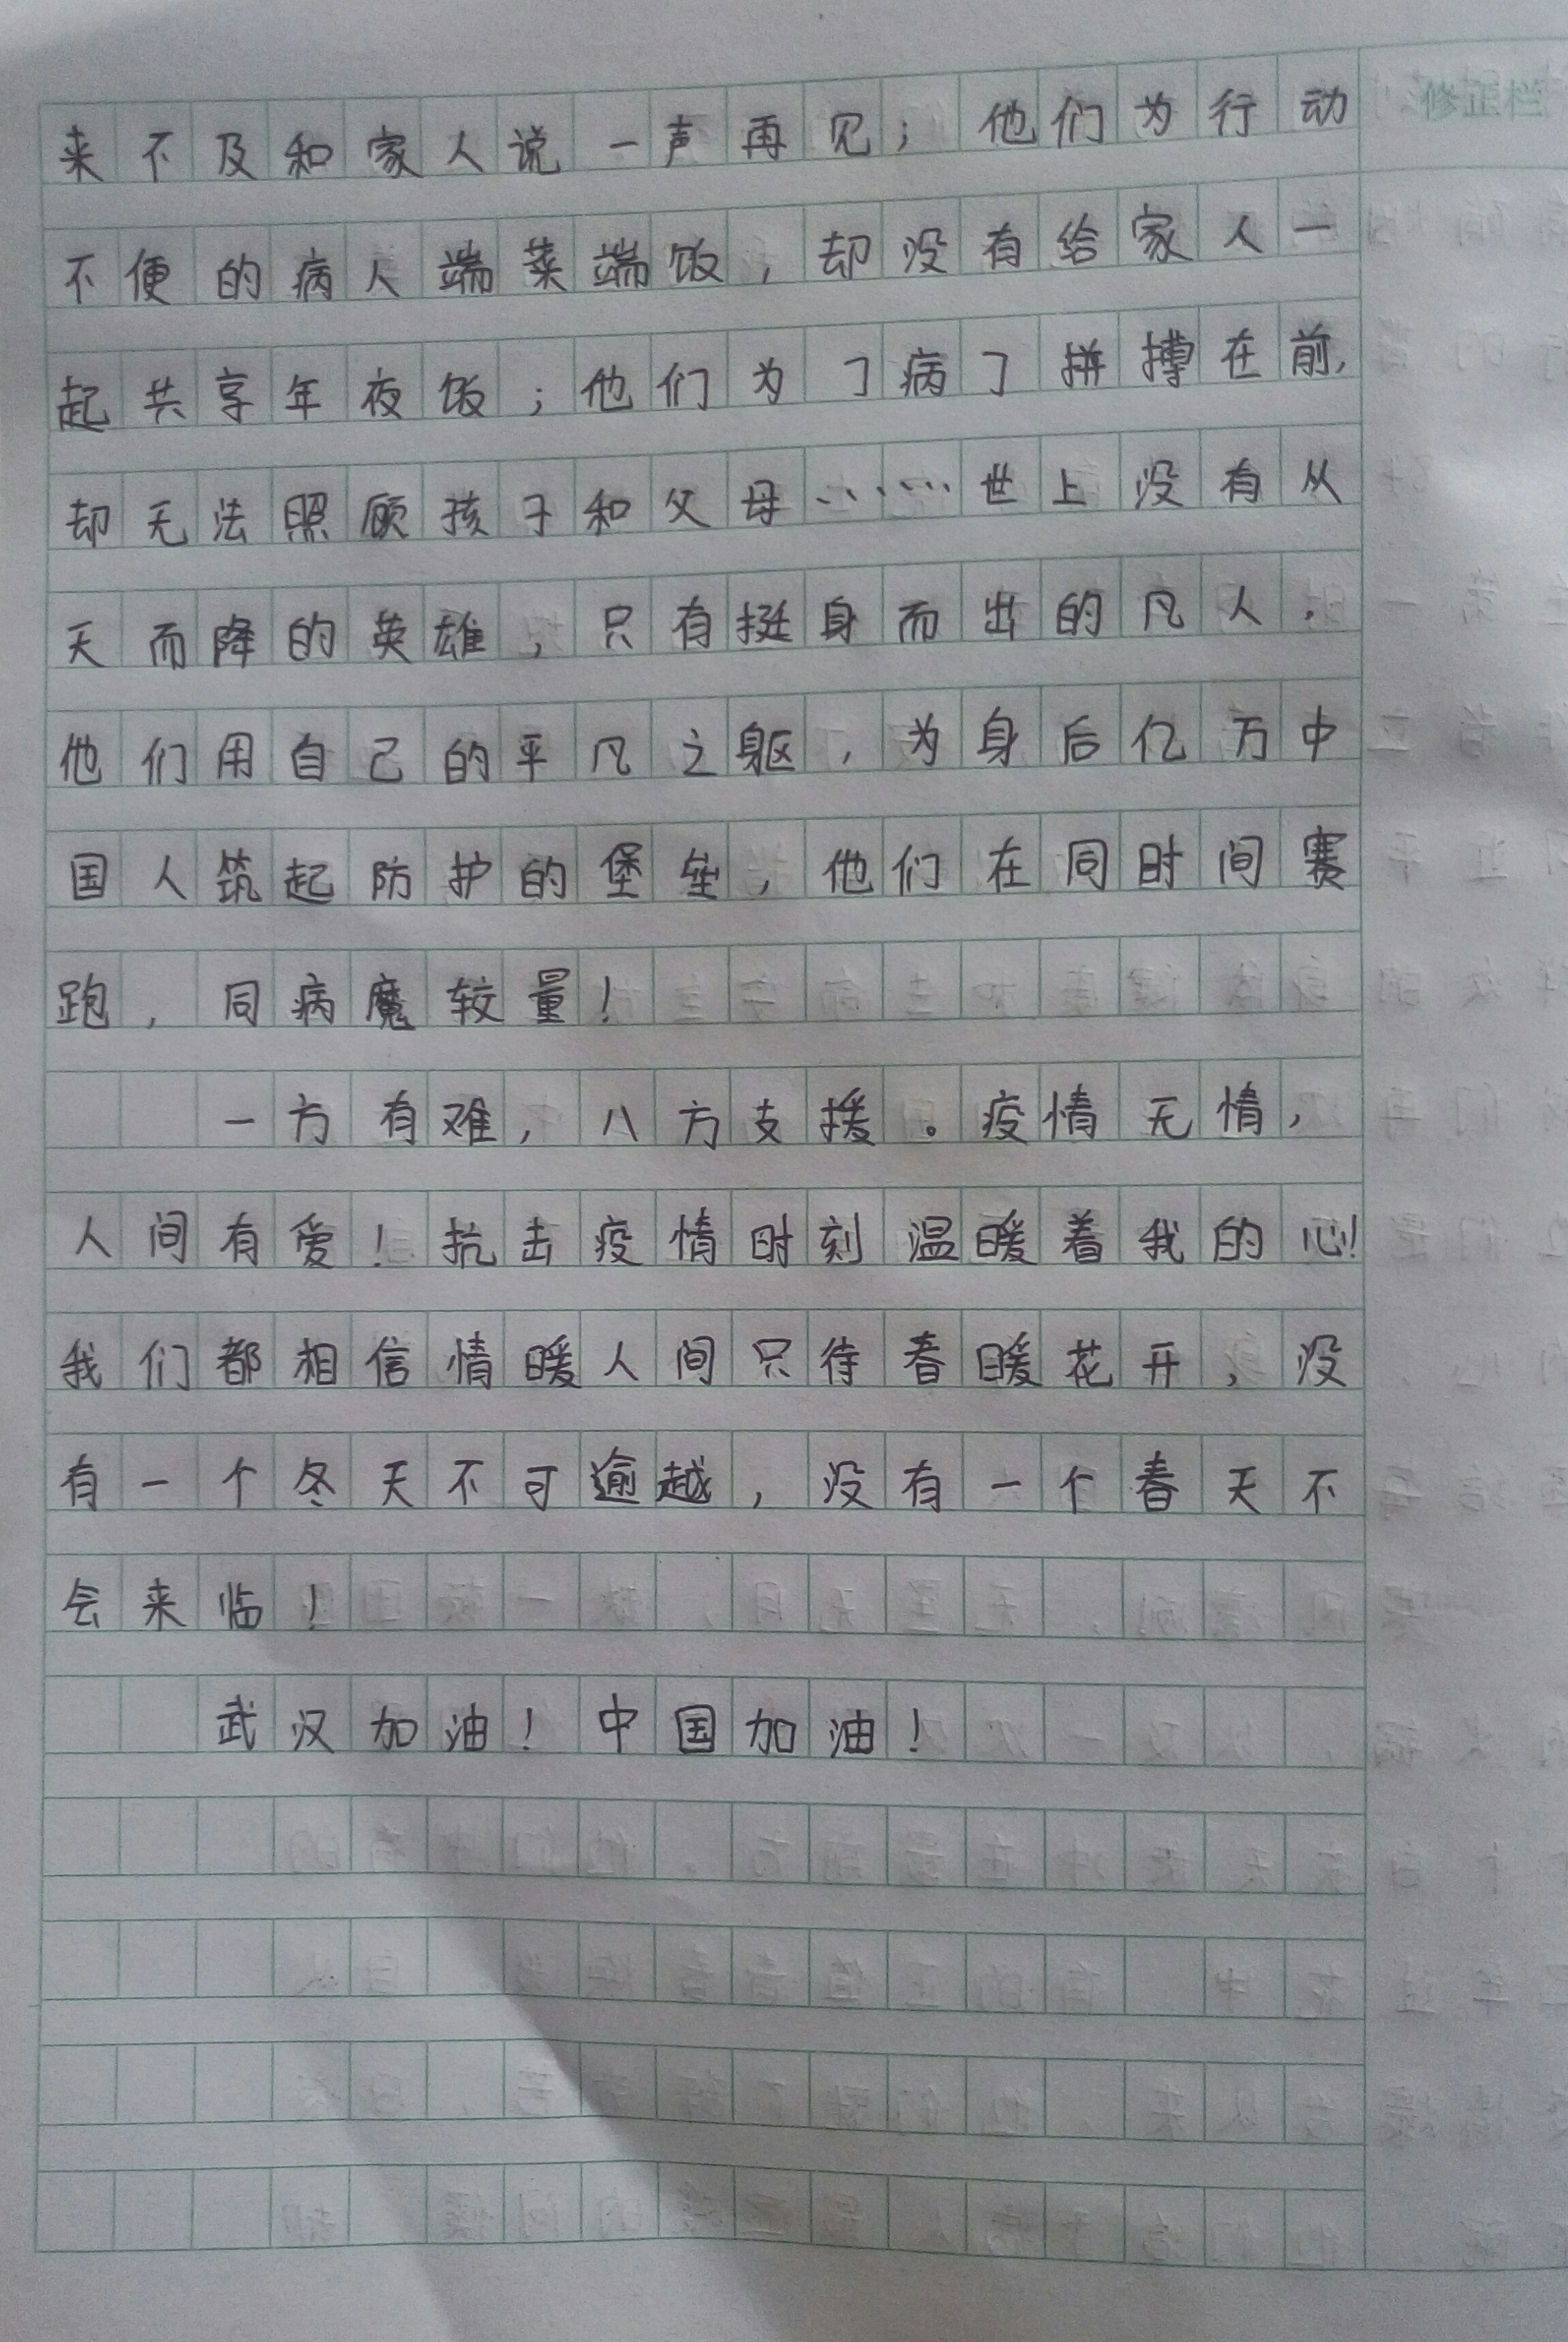 修正栏
来不及和家人说一声再见；他们为行动
不便的病人端菜端饭，却没有给家人一
起共享年夜饭；他们为了病了拼搏在前，
却无法照顾孩子和父母……世上没有从
天而降的英雄，只有挺身而出的凡人，
他们用自己的平凡之躯，为身后亿万中
国人筑起防护的堡垒，他们在同时间赛
跑，同病魔较量！
一方有难，八方支援。疫情无情，
人间有爱！抗击疫情时刻温暖着我的心！
我们都相信情暖人间只待春暖花开，没
有一个冬天不可逾越，没有一个春天不
会来临！
武汉加油！中国加油！